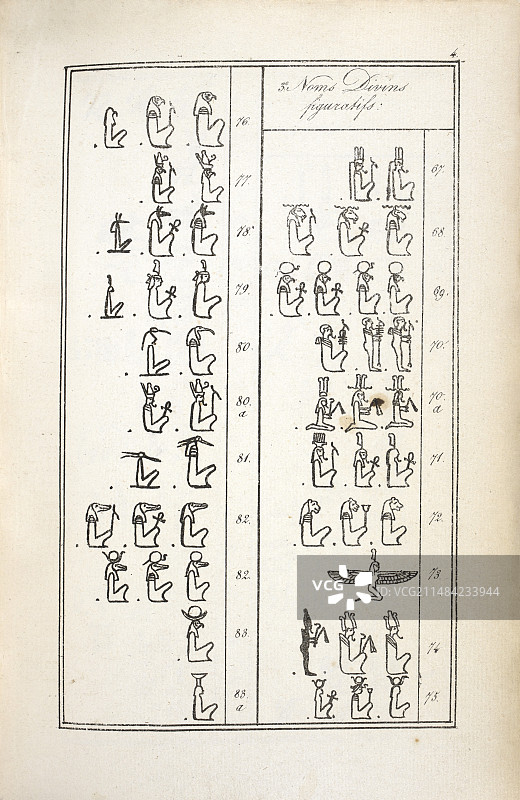 4.
3.° Noms Divins
figuratifs:
67.
68.
69.
70.
70.
a
71.
72.
73
74
75.
76.
77.
78.
79.
80.
80.
a
81.
82.
82.
83.
83.
a
VCG
VCG211484233944